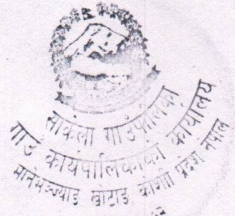 साकेला गाउँपालिका
गाउँ कार्यपालिकाको कार्यालय
मानेभञ्ज्याङ, खोटाङ, कोशी प्रदेश नेपाल